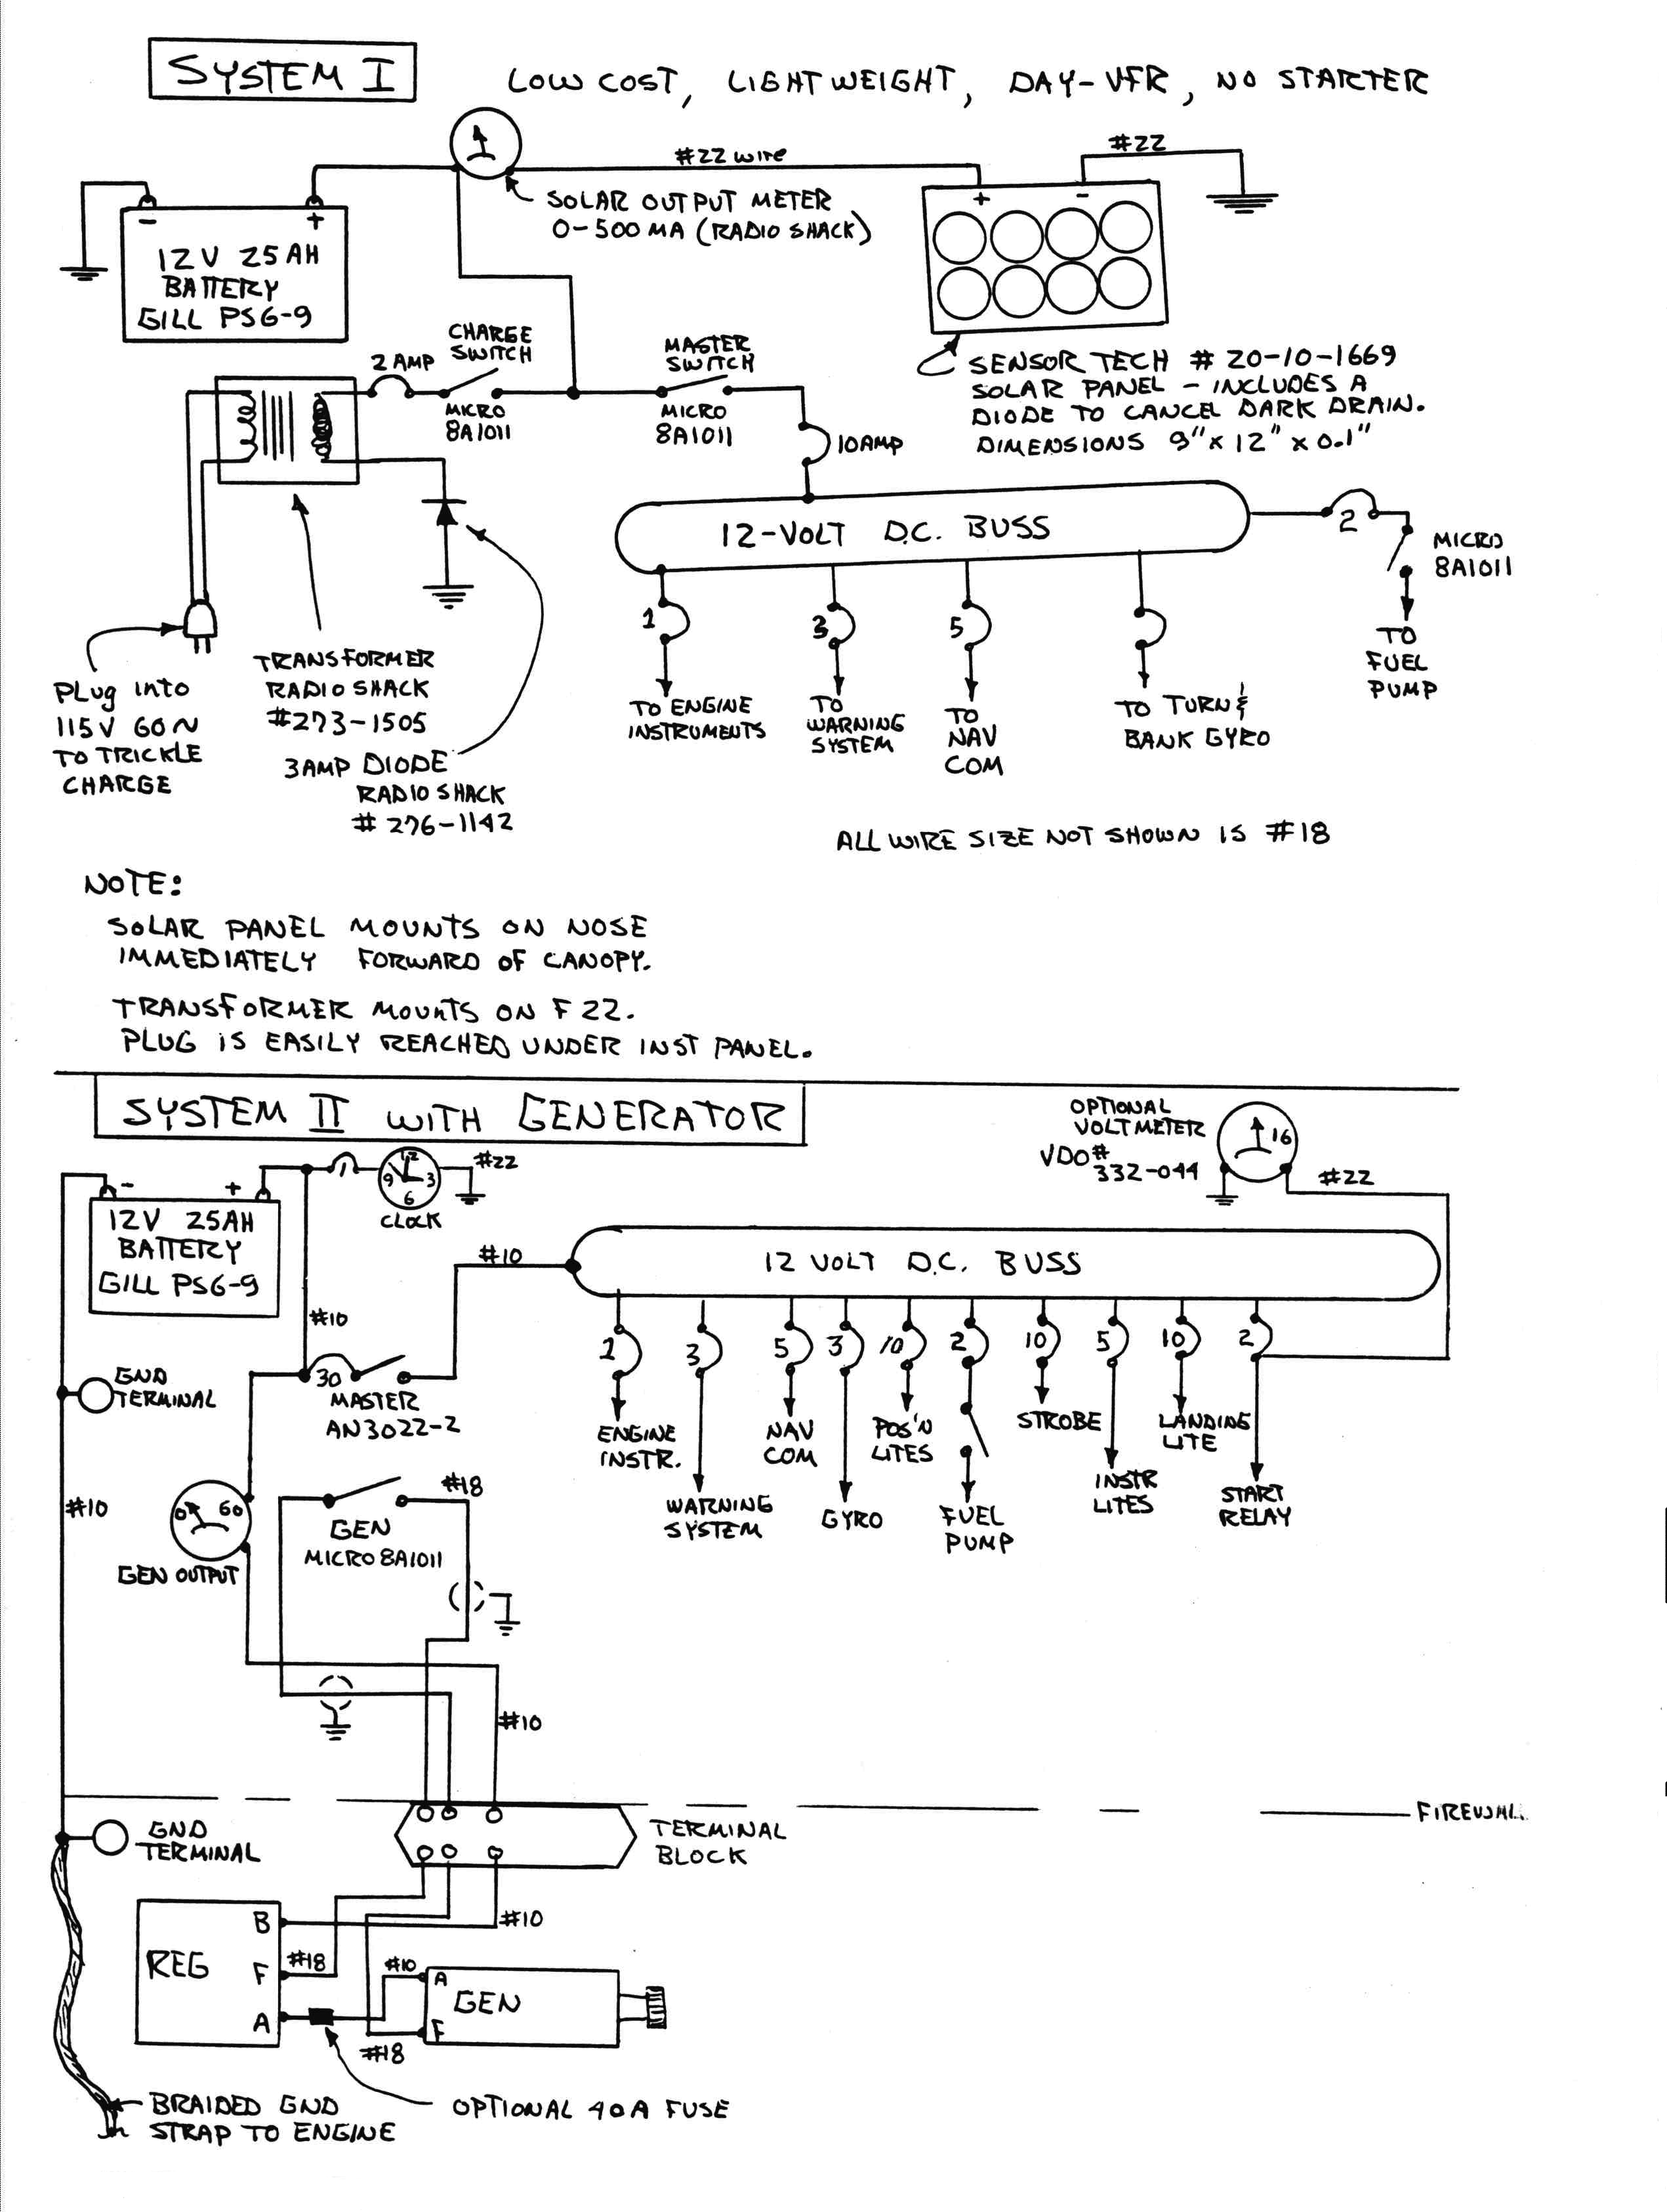 SYSTEM I
LOW COST, LIGHTWEIGHT, DAY-VFR, NO STARTER
#22 WIRE
#22
SOLAR OUTPUT METER
0-500 MA (RADIO SHACK)
- +
12V 25AH
BATTERY
GILL PS6-9
+ -
SENSOR TECH # 20-10-1669
SOLAR PANEL - INCLUDES A
DIODE TO CANCEL DARK DRAIN.
DIMENSIONS 9" x 12" x 0.1"
2 AMP
CHARGE
SWITCH
MICRO
8A1011
MASTER
SWITCH
MICRO
8A1011
10AMP
12-VOLT D.C. BUSS
2
MICRO
8A1011
TO
FUEL
PUMP
1
3
5
TO ENGINE
INSTRUMENTS
TO
WARNING
SYSTEM
TO
NAV
COM
TO TURN &
BANK GYRO
PLUG INTO
115V 60~
TO TRICKLE
CHARGE
TRANSFORMER
RADIO SHACK
#273-1505
3AMP DIODE
RADIO SHACK
# 276-1142
ALL WIRE SIZE NOT SHOWN IS #18
NOTE:
SOLAR PANEL MOUNTS ON NOSE
IMMEDIATELY FORWARD OF CANOPY.
TRANSFORMER MOUNTS ON F22.
PLUG IS EASILY REACHED UNDER INST PANEL.
SYSTEM II WITH GENERATOR
OPTIONAL
VOLTMETER
VDO#
332-044
16
#22
1
12
9 3
6
CLOCK
#22
- +
12V 25AH
BATTERY
GILL PS6-9
#10
#10
12 VOLT D.C. BUSS
GND
TERMINAL
30
MASTER
AN3022-2
1
3
5
3
10
2
10
5
10
2
ENGINE
INSTR.
WARNING
SYSTEM
NAV
COM
GYRO
POS'N
LITES
FUEL
PUMP
STROBE
INSTR
LITES
LANDING
LITE
START
RELAY
#10
0 60
GEN OUTPUT
#18
GEN
MICRO 8A1011
#10
FIREWALL
GND
TERMINAL
TERMINAL
BLOCK
REG
B
F
A
#10
#18
#10
A
GEN
F
#18
BRAIDED GND
STRAP TO ENGINE
OPTIONAL 40A FUSE